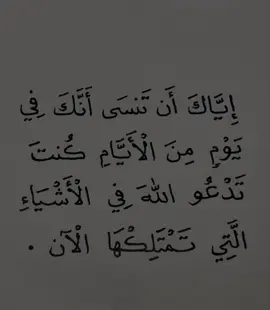 إِيَّاكَ أَن تَنسَى أَنَّكَ فِي
يَوْمٍ مِنَ الْأَيَّامِ كُنتَ
تَدْعُو اللهَ فِي الْأَشْيَاءِ
الَّتِي تَمْتَلِكْهَا الْآن .